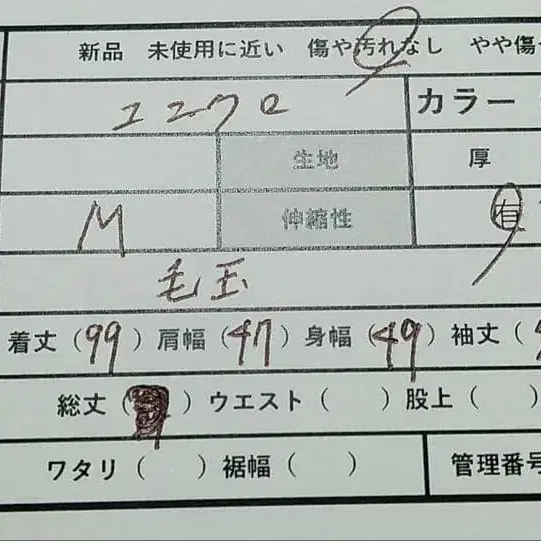 新品 未使用に近い 傷や汚れなし やや傷
カラー
生地 厚
M 伸縮性 有
毛玉
着丈（99）肩幅（47）身幅（49）袖丈（
総丈（ ）ウエスト（ ）股上（ ）
ワタリ（ ）裾幅（ ） 管理番号